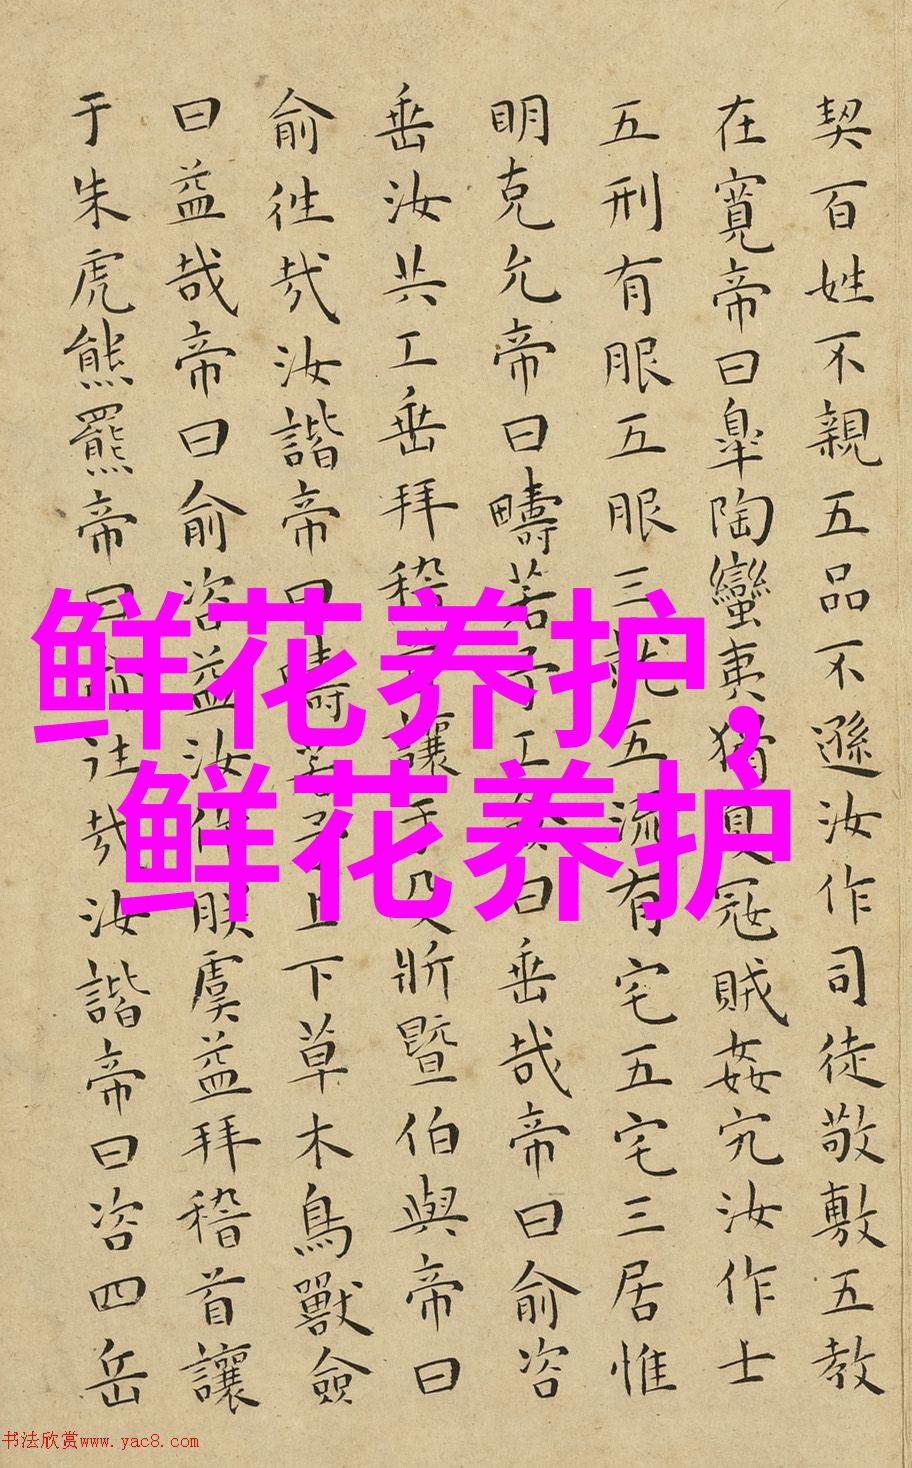 契百姓不親五品不遜汝作司徒敬敷五教
在寬帝曰皐陶蠻夷猾夏冦賊姦宄汝作士
五刑有服五服三就五流有宅五宅三居惟
明克允帝曰疇若予工曰垂哉帝曰俞咨
垂汝共工垂拜稽讓于殳斨暨伯與帝曰
俞往哉汝諧帝曰疇若予上下草木鳥獸僉
曰益哉帝曰俞咨益汝作朕虞益拜稽首讓
于朱虎熊羆帝曰俞往哉汝諧帝曰咨四岳
鲜花养护，
鲜花养护
书法欣赏www.yac8.com